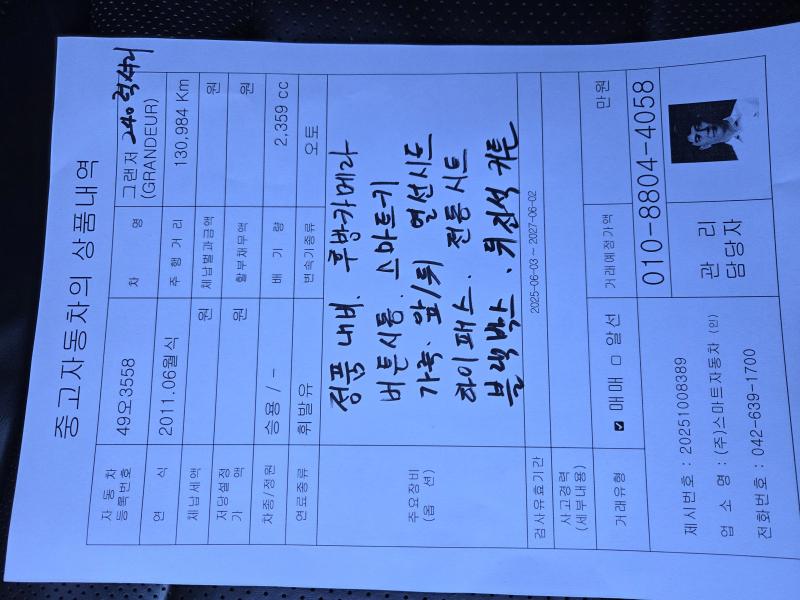 중고자동차의 상품내역
자동차등록번호 49오3558 차명 그랜저 240 럭셔리 (GRANDEUR)
연식 2011.06월식 주행거리 130,984 Km
체납세액 원 체납벌과금액 원
저당설정가액 원 할부채무액 원
차종/정원 승용 / - 배기량 2,359 cc
연료종류 휘발유 변속기종류 오토
주요장비 (옵션)
정품 내비. 후방카메라
버튼시동. 스마트키
가죽. 앞/뒤 열선시트
하이패스. 전동시트
블랙박스. 뒤좌석 커튼
검사유효기간 2025-06-03 ~ 2027-06-02
사고경력 (세부내용)
거래유형 ☑ 매매 □ 알선 거래예정가액 만원
제시번호 : 20251008389
업소명 : (주)스마트자동차 (인)
전화번호 : 042-639-1700
관리담당자
010-8804-4058